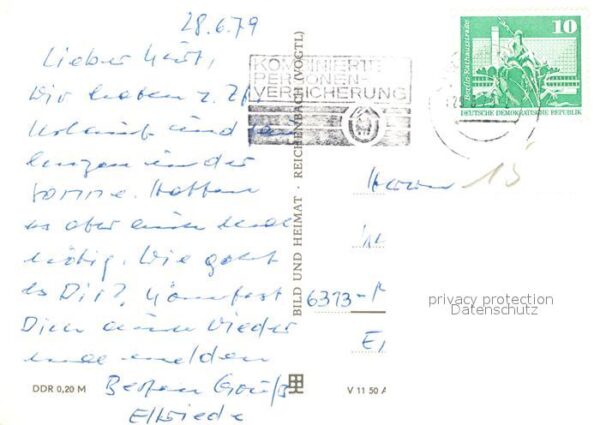 28.6.79
Lieber Kurt,
Wir haben z. Zt.
Urlaub und
in der
Sonne. Hatten
es aber auch mal
nötig. Wie geht
es Dir? Könntest
Dich auch wieder
mal melden
Besten Gruß
Elfriede
DDR 0,20 M
BILD UND HEIMAT · REICHENBACH (VOGTL)
V 11 50 A
KOMBINIERTE
PERSONEN-
VERSICHERUNG
10
Berlin, Rathausstraße
DEUTSCHE DEMOKRATISCHE REPUBLIK
Herrn 15
6373-
privacy protection
Datenschutz